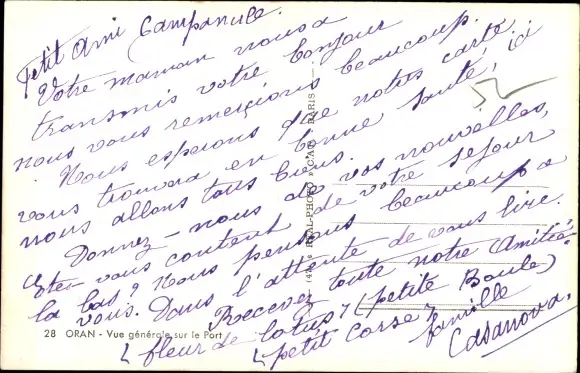 Petit Ami Campanule.
Votre maman nous a
transmis votre bonjour
nous vous remerçions beaucoup.
Nous espérons que notre carte
vous trouvera en bonne santé, ici
nous allons tous bien.
Donnez-nous de vos nouvelles,
Etes vous content de votre séjour
là bas? Nous pensons beaucoup a
vous. Dans l'attente de vous lire.
Recevez toute notre Amitié
(fleur de lotus) (petite Boule)
(petit Corse) famille
Casanova.
28 ORAN - Vue générale sur le Port
REAL-PHOTO » C.A.P. - PARIS